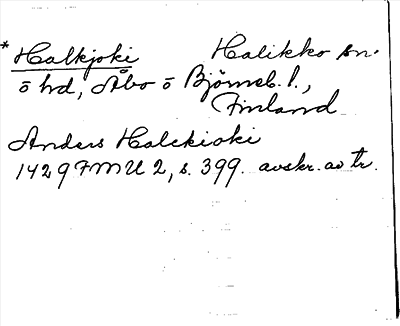 * Halkjoki Halikko sn.
ō hd, Åbo ō Björneb. l.,
Finland
Anders Halckioki
1429 FMU 2, s. 399. avskr. av tr.